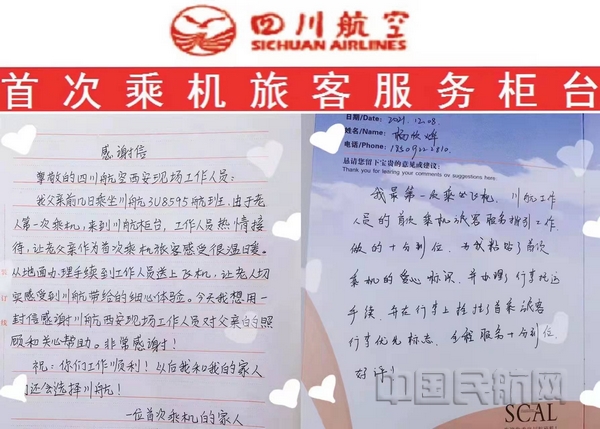 四川航空
SICHUAN AIRLINES
首次乘机旅客服务柜台
感谢信
尊敬的四川航空西安现场工作人员：
我父亲前几日乘坐川航3U8595航班，由于老
人第一次乘机，来到川航柜台，工作人员热情接
待，让老父亲作为首次乘机旅客感受很温暖。
从地面办理手续到工作人员送上飞机，让老人切
实感受到川航带给的细心体验。今天我想用一
封信感谢川航西安现场工作人员对父亲的照
顾和关心帮助。非常感谢！
祝：你们工作顺利！以后我和我的家人
们还会选择川航！
一位首次乘机的家人
日期/Date: 2021.12.08
姓名/Name: 杨
电话/Phone:
恳请您留下宝贵的意见或建议：
Thank you for leaving your comments or suggestions here.
我是第一次乘坐飞机，川航工作
人员的首次乘机旅客服务指引工作
做的十分到位，为我粘贴了首次
乘机的爱心标识，并办理了行李托运
手续，并在行李上拴挂了首乘旅客
行李优先标志，全程服务十分到位，
好评！
中国民航网
SCAL